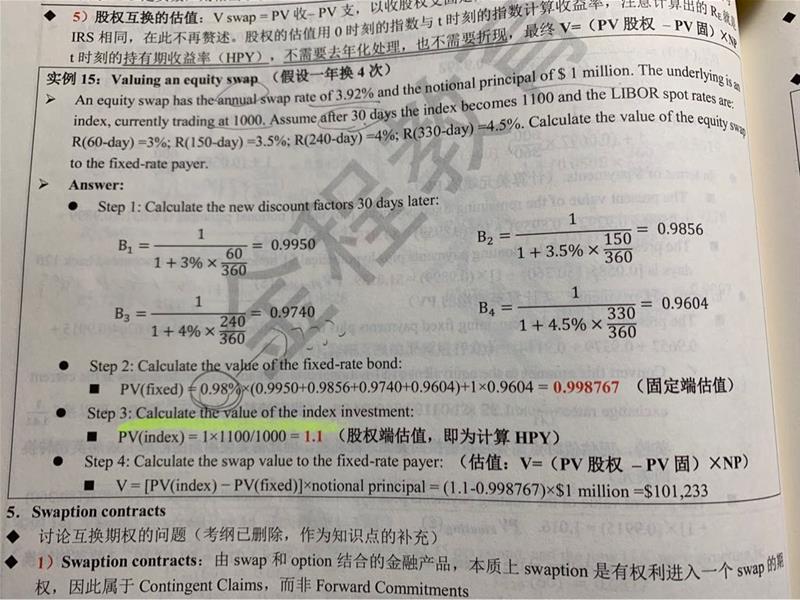 ◆ 5）股权互换的估值：V swap = PV 收– PV 支，以收股权支固定
IRS 相同，在此不再赘述。股权的估值用 0 时刻的指数与 t 时刻的指数计算收益率，注意计算出的 RE就是
t 时刻的持有期收益率（HPY），不需要去年化处理，也不需要折现，最终 V=（PV 股权 – PV 固）×NP
实例 15：Valuing an equity swap （假设一年换 4 次）
➢ An equity swap has the annual swap rate of 3.92% and the notional principal of $ 1 million. The underlying is an
index, currently trading at 1000. Assume after 30 days the index becomes 1100 and the LIBOR spot rates are:
R(60-day) =3%; R(150-day) =3.5%; R(240-day) =4%; R(330-day) =4.5%. Calculate the value of the equity swap
to the fixed-rate payer.
➢ Answer:
● Step 1: Calculate the new discount factors 30 days later:
B₁ = 1 / (1 + 3% × 60/360) = 0.9950 B₂ = 1 / (1 + 3.5% × 150/360) = 0.9856
B₃ = 1 / (1 + 4% × 240/360) = 0.9740 B₄ = 1 / (1 + 4.5% × 330/360) = 0.9604
● Step 2: Calculate the value of the fixed-rate bond:
■ PV(fixed) = 0.98%×(0.9950+0.9856+0.9740+0.9604)+1×0.9604 = 0.998767 （固定端估值）
● Step 3: Calculate the value of the index investment:
■ PV(index) = 1×1100/1000 = 1.1 （股权端估值，即为计算 HPY）
● Step 4: Calculate the swap value to the fixed-rate payer: （估值：V=（PV 股权 – PV 固）×NP）
■ V = [PV(index) − PV(fixed)]×notional principal = (1.1-0.998767)×$1 million =$101,233
5. Swaption contracts
◆ 讨论互换期权的问题（考纲已删除，作为知识点的补充）
◆ 1）Swaption contracts：由 swap 和 option 结合的金融产品，本质上 swaption 是有权利进入一个 swap 的期
权，因此属于 Contingent Claims，而非 Forward Commitments
全程教育